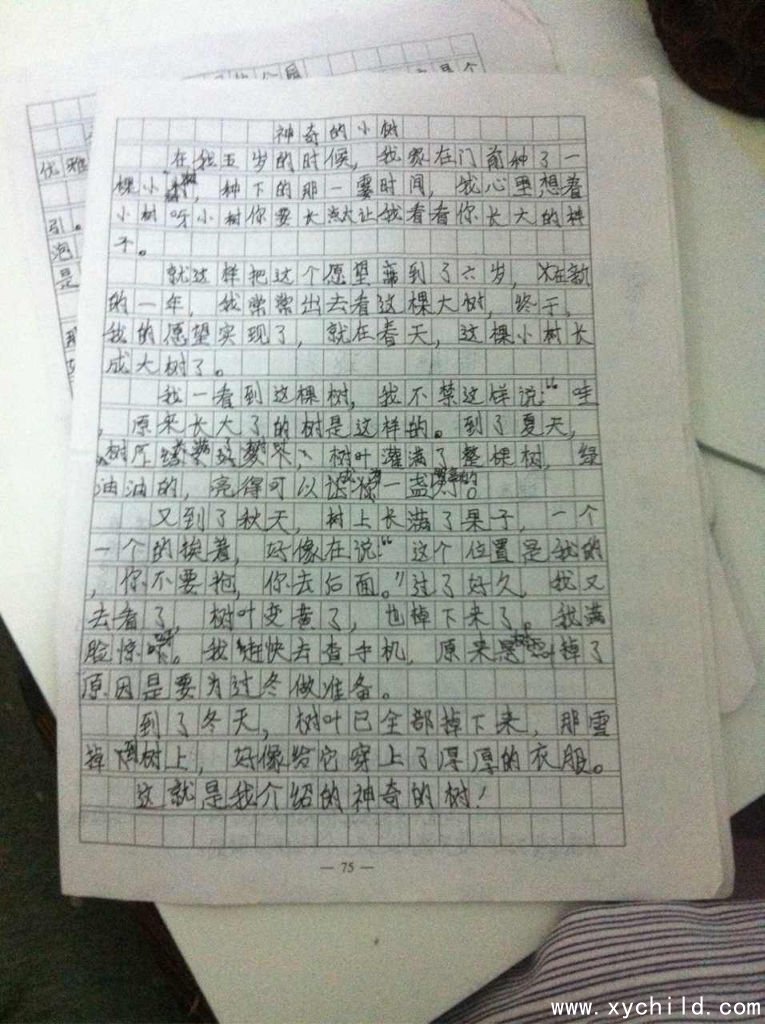 神奇的小树
在我五岁的时候，我家在门前种了一
棵小树，种下的那一霎时间，我心里想着
小树呀小树你要长大让我看看你长大的样
子。
就这样把这个愿望带到了六岁，在新
的一年，我常常出去看这棵大树，终于，
我的愿望实现了，就在春天，这棵小树长
成大树了。
我一看到这棵树，我不禁这样说：“哇
，原来长大了的树是这样的。到了夏天，
树叶灌满了整棵树，绿
油油的，亮得可以
又到了秋天，树上长满了果子，一个
一个的挨着，好像在说：“这个位置是我的
，你不要抢，你去后面。”过了好久，我又
去看了，树叶变黄了，也掉下来了。我满
脸惊。我赶快去查手机，原来是叶掉了
原因是要为过冬做准备。
到了冬天，树叶已全部掉下来，那雪
掉到树上，好像给它穿上了厚厚的衣服。
这就是我介绍的神奇的树！
— 75 —
优雅
引。
泡
是
www.xychild.com